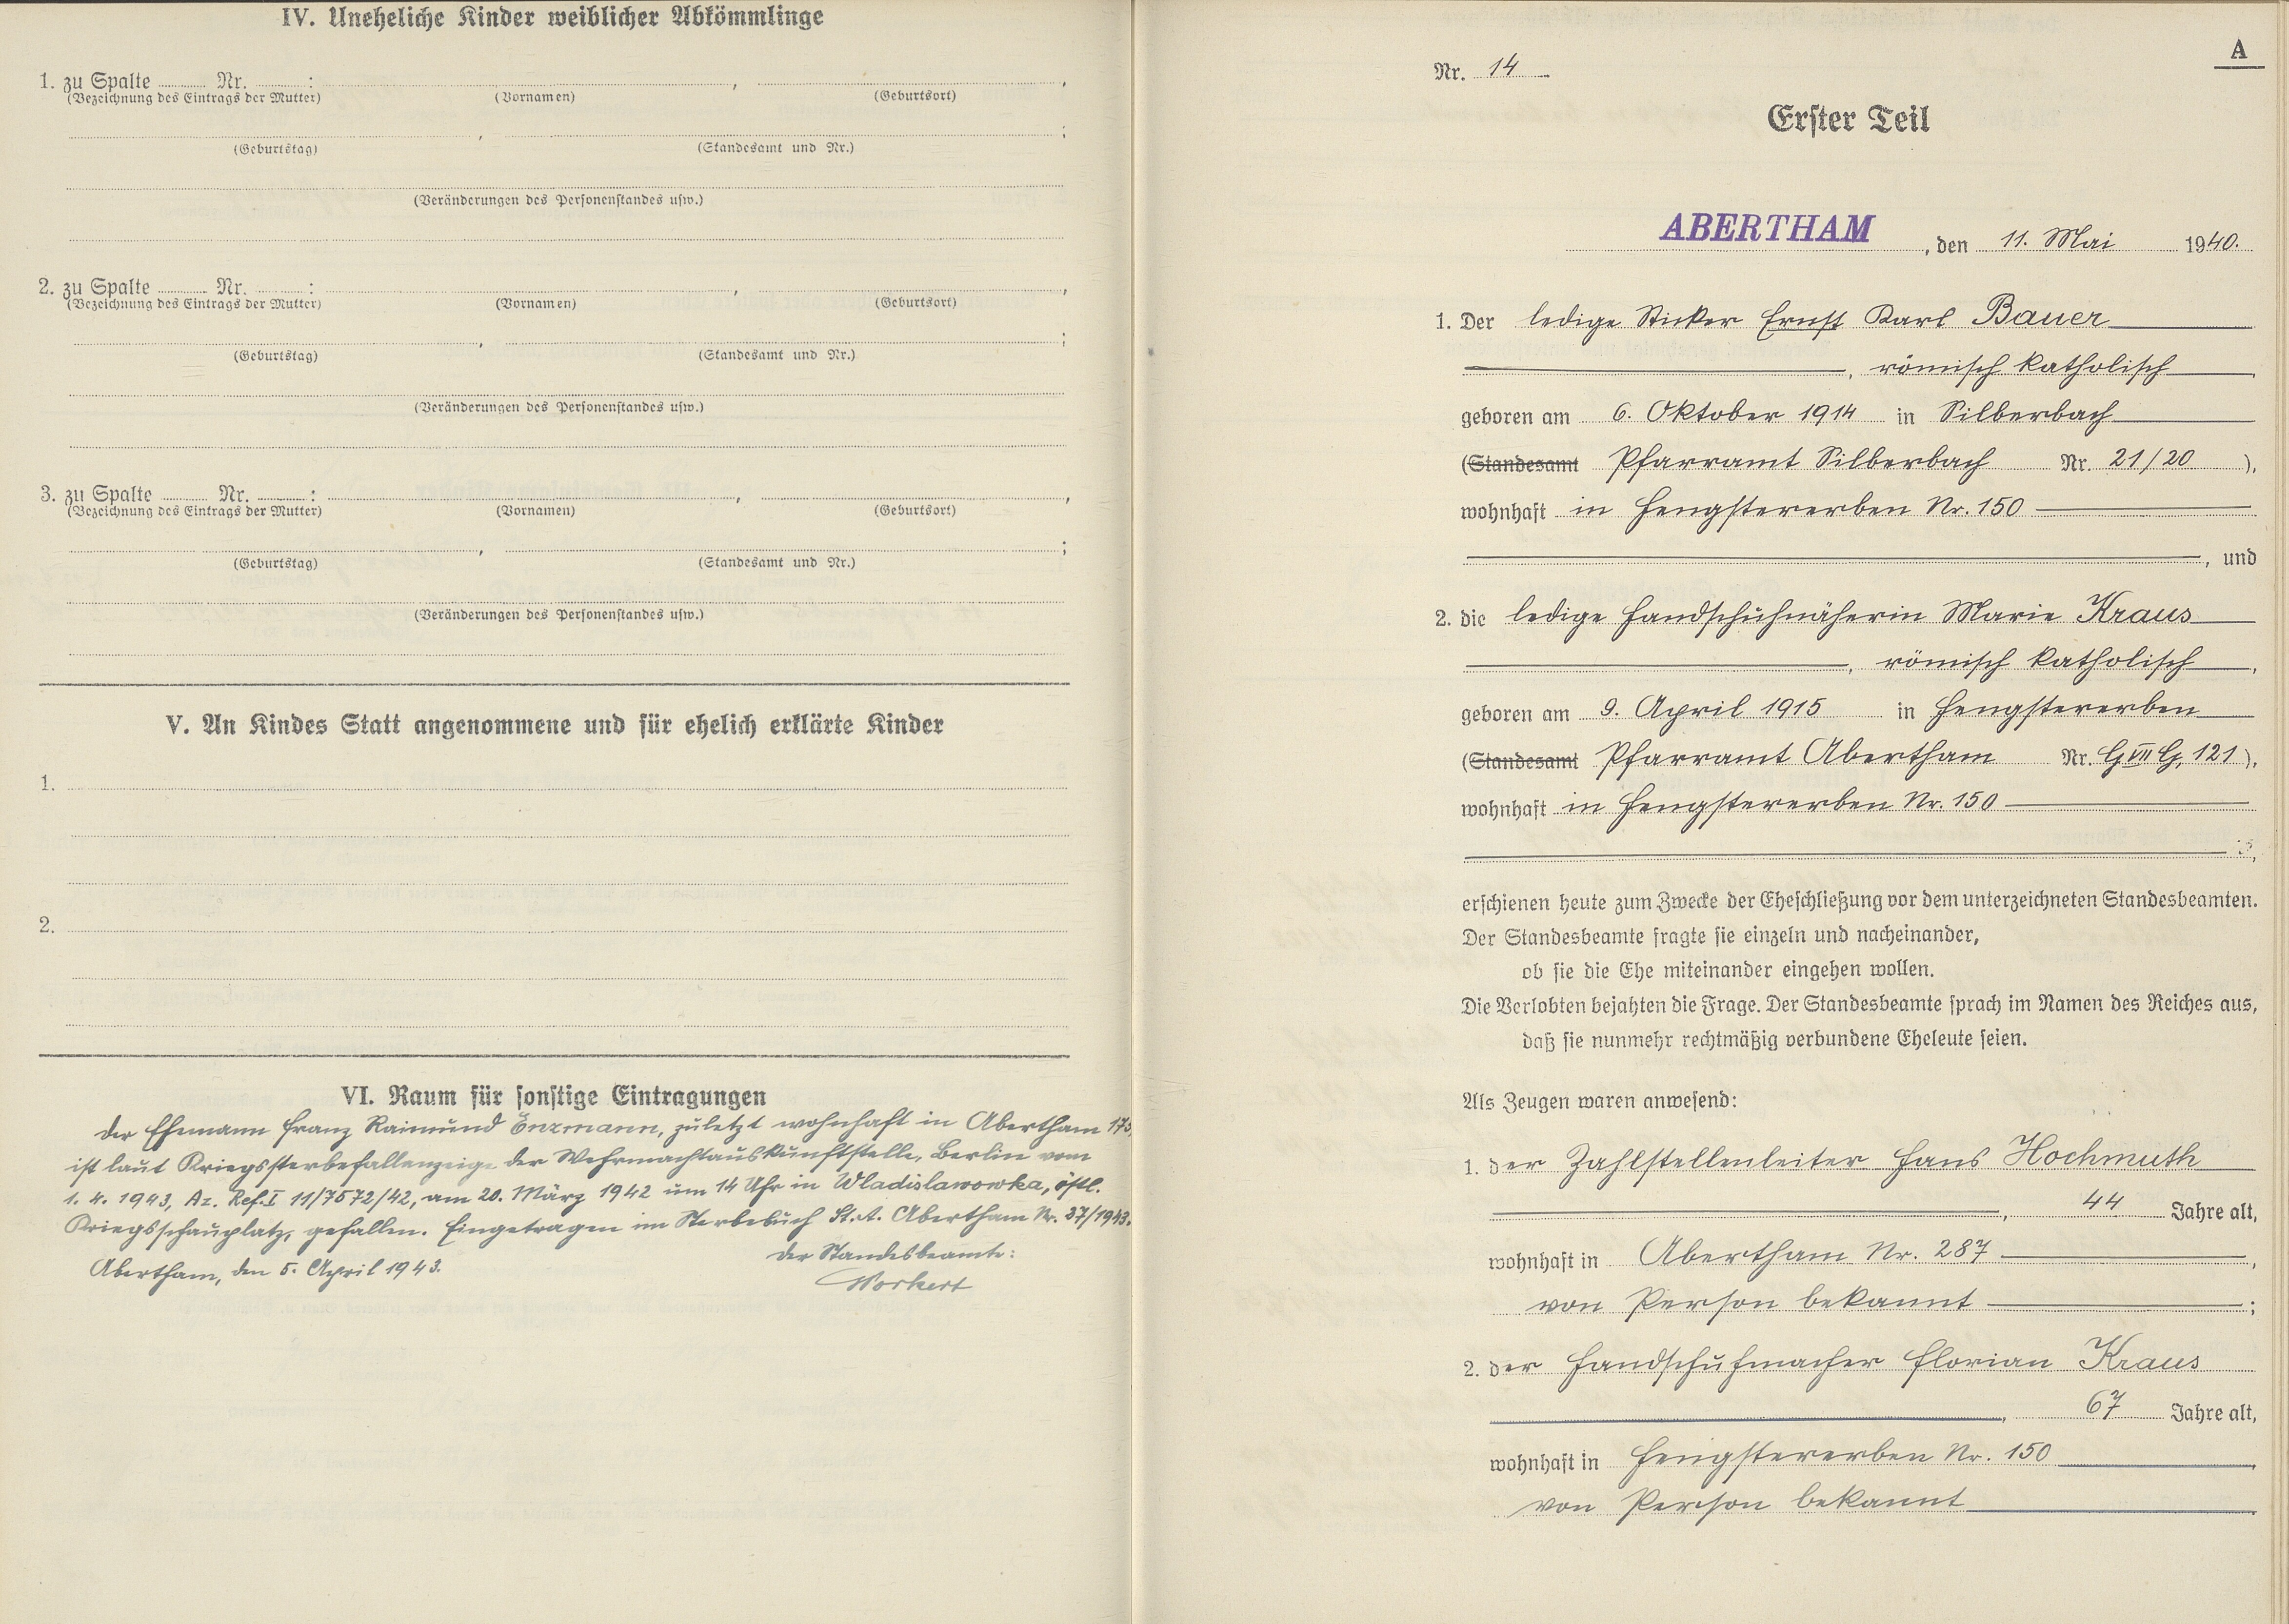 IV. Uneheliche Kinder weiblicher Abkömmlinge
1. zu Spalte ........ Nr. ........ : ........ , ........ ,
(Bezeichnung des Eintrags der Mutter) (Vornamen) (Geburtsort)
........ , ........ ;
(Geburtstag) (Standesamt und Nr.)
(Veränderungen des Personenstandes usw.)
2. zu Spalte ........ Nr. ........ : ........ , ........ ,
(Bezeichnung des Eintrags der Mutter) (Vornamen) (Geburtsort)
........ , ........ ;
(Geburtstag) (Standesamt und Nr.)
(Veränderungen des Personenstandes usw.)
3. zu Spalte ........ Nr. ........ : ........ , ........ ,
(Bezeichnung des Eintrags der Mutter) (Vornamen) (Geburtsort)
........ , ........ ;
(Geburtstag) (Standesamt und Nr.)
(Veränderungen des Personenstandes usw.)
V. An Kindes Statt angenommene und für ehelich erklärte Kinder
1.
2.
VI. Raum für sonstige Eintragungen
Der Ehemann Franz Raimund Enzmann, zuletzt wohnhaft in Abertham 173,
ist laut Kriegssterbefallanzeige der Wehrmachtauskunftstelle, Berlin vom
1. 4. 1943, Az. Ref. I 11/7572/42, am 20. März 1942 um 14 Uhr in Wladislawowka, östl.
Kriegsschauplatz, gefallen. Eingetragen im Sterbebuch St.A. Abertham Nr. 37/1943.
Abertham, den 5. April 1943. Der Standesbeamte:
Workert
A
Nr. 14
Erster Teil
ABERTHAM, den 11. Mai 1940.
1. Der ledige Sticker Ernst Karl Bauer
, römisch katholisch,
geboren am 6. Oktober 1914 in Silberbach
(Standesamt Pfarramt Silberbach Nr. 21/20),
wohnhaft in Hengstererben Nr. 150
, und
2. die ledige Handschuhnäherin Marie Kraus
, römisch katholisch,
geboren am 9. April 1915 in Hengstererben
(Standesamt Pfarramt Abertham Nr. G VII G, 121),
wohnhaft in Hengstererben Nr. 150
,
erschienen heute zum Zwecke der Eheschließung vor dem unterzeichneten Standesbeamten.
Der Standesbeamte fragte sie einzeln und nacheinander,
ob sie die Ehe miteinander eingehen wollen.
Die Verlobten bejahten die Frage. Der Standesbeamte sprach im Namen des Reiches aus,
daß sie nunmehr rechtmäßig verbundene Eheleute seien.
Als Zeugen waren anwesend:
1. der Zahlstellenleiter Hans Hochmuth
, 44 Jahre alt,
wohnhaft in Abertham Nr. 287,
von Person bekannt;
2. der Handschuhmacher Florian Kraus
, 67 Jahre alt,
wohnhaft in Hengstererben Nr. 150
von Person bekannt